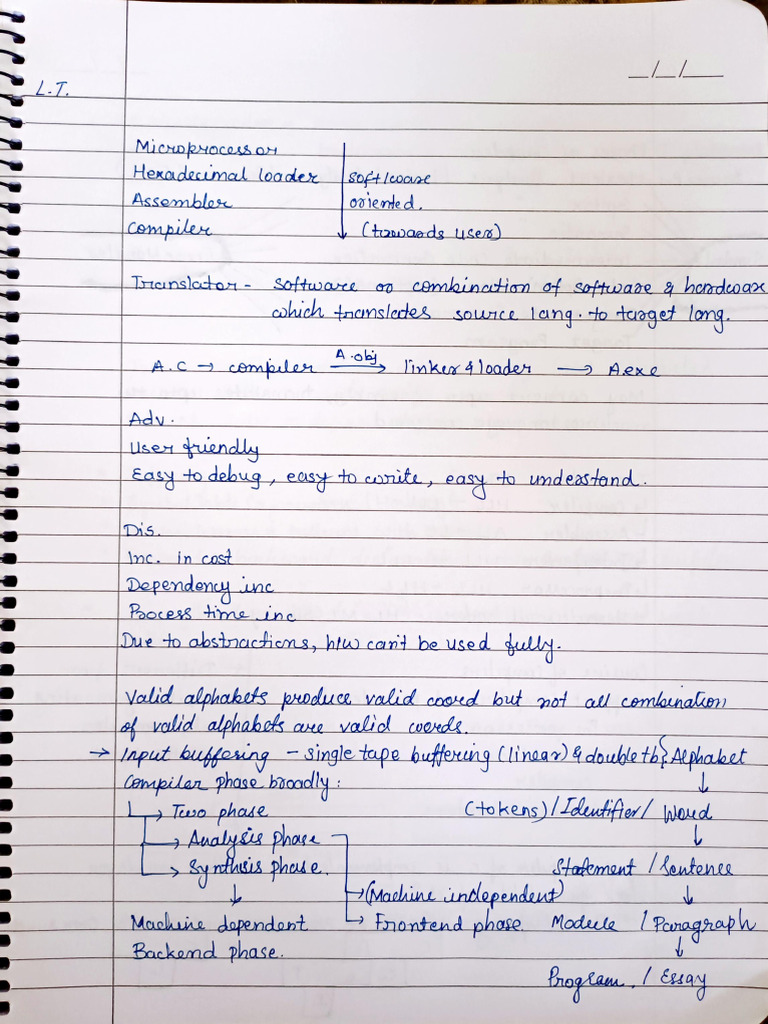 __/__/____
L.T.
Microprocessor
Hexadecimal loader software
Assembler oriented.
Compiler (towards user)
Translator - software or combination of software & hardware
which translates source lang. to target lang.
A.C → compiler A.obj → linker & loader → A.exe
Adv.
User friendly
Easy to debug, easy to write, easy to understand.
Dis.
Inc. in cost
Dependency inc
Process time inc
Due to abstractions, h/w can't be used fully.
Valid alphabets produce valid word but not all combination
of valid alphabets are valid words.
→ Input buffering - single tape buffering (linear) & double tb} Alphabet
Compiler phase broadly: ↓
→ Two phase (tokens) / Identifier / Word
→ Analysis phase ↓
→ Synthisis phase. Statement / Sentence
↓ → (Machine independent) ↓
Machine dependent → Frontend phase. Module / Paragraph
Backend phase. ↓
Program. / Essay